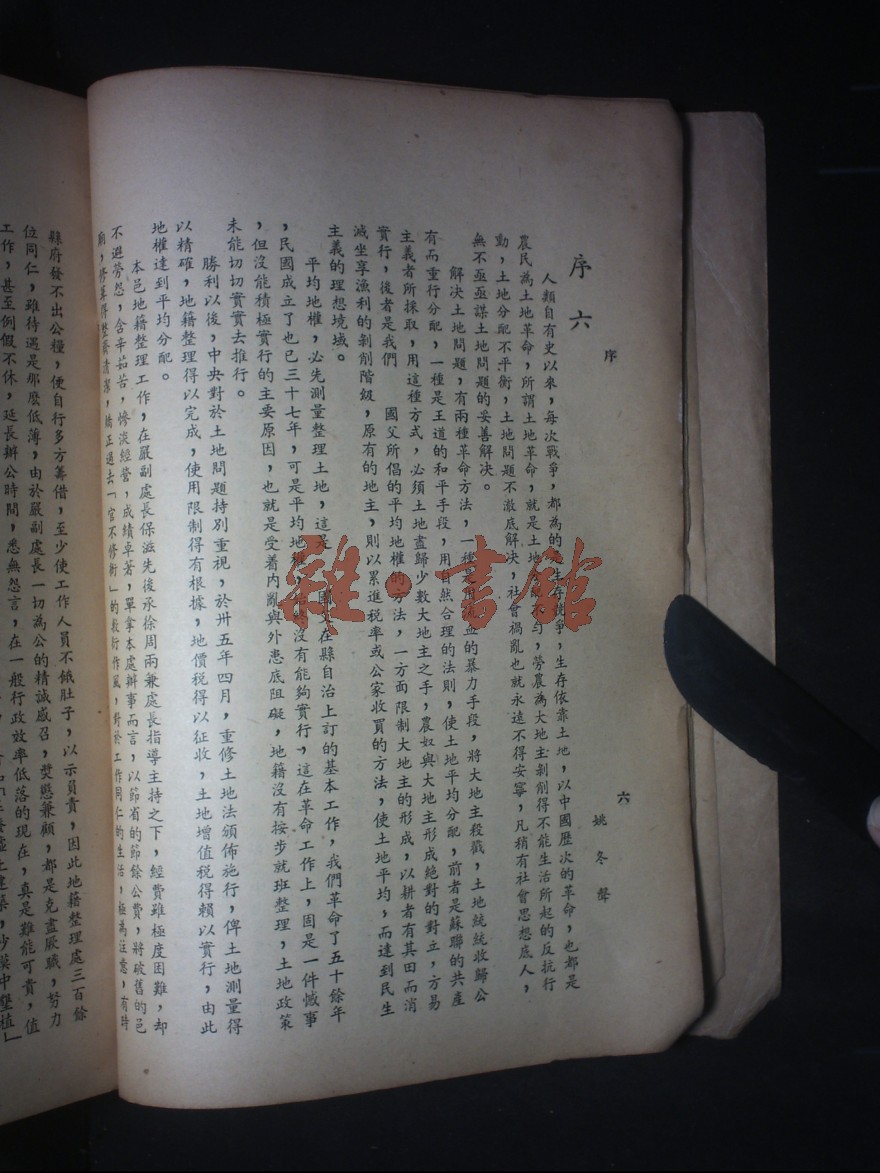 序
六
序六
姚冬聲
人類自有史以來，每次戰爭，都為的是生存競爭，生存依靠土地，以中國歷次的革命，也都是
農民為土地革命，所謂土地革命，就是土地分配不勻，勞農為大地主剝削得不能生活所起的反抗行
動，土地分配不平衡，土地問題不澈底解決，社會禍亂也就永遠不得安寧，凡稍有社會思想底人，
無不亟亟謀土地問題的妥善解決。
解決土地問題，有兩種革命方法，一種是用流血的暴力手段，將大地主殺戮，土地統統收歸公
有而重行分配，一種是王道的和平手段，用自然合理的法則，使土地平均分配，前者是蘇聯的共產
主義者所採取，用這種方式，必須土地盡歸少數大地主之手，農奴與大地主形成絶對的對立，方易
實行，後者是我們　國父所倡的平均地權的方法，一方面限制大地主的形成，以耕者有其田而消
滅坐享漁利的剝削階級，原有的地主，則以累進税率或公家收買的方法，使土地平均，而達到民生
主義的理想境域。
平均地權，必先測量整理土地，這是　國父在縣自治上訂的基本工作，我們革命了五十餘年
，民國成立了也已三十七年，可是平均地權，始終沒有能夠實行，這在革命工作上，固是一件憾事
，但沒能積極實行的主要原因，也就是受着內亂與外患底阻礙，地籍沒有按步就班整理，土地政策
未能切切實實去推行。
勝利以後，中央對於土地問題特別重視，於卅五年四月，重修土地法頒佈施行，俾土地測量得
以精確，地籍整理得以完成，使用限制得有根據，地價税得以征收，土地增值税得賴以實行，由此
地權達到平均分配。
本邑地籍整理工作，在嚴副處長保滋先後承徐周兩兼處長指導主持之下，經費雖極度困難，却
不避勞怨，含辛茹苦，慘淡經營，成績卓著，單拿本處辦事而言，以節省的節餘公費，將破舊的邑
廟，修葺得整齊清潔，矯正過去「官不修衙」的敷衍作風，對於工作同仁的生活，極為注意，有時
縣府發不出公糧，便自行多方籌借，至少使工作人員不餓肚子，以示負責，因此地籍整理處三百餘
位同仁，雖待遇是那麼低薄，由於嚴副處長一切為公的精誠感召，獎懲兼顧，都是克盡厥職，努力
工作，甚至例假不休，延長辦公時間，悉無怨言，在一般行政效率低落的現在，真是難能可貴，值
沙漠中墾植」
雜·書館